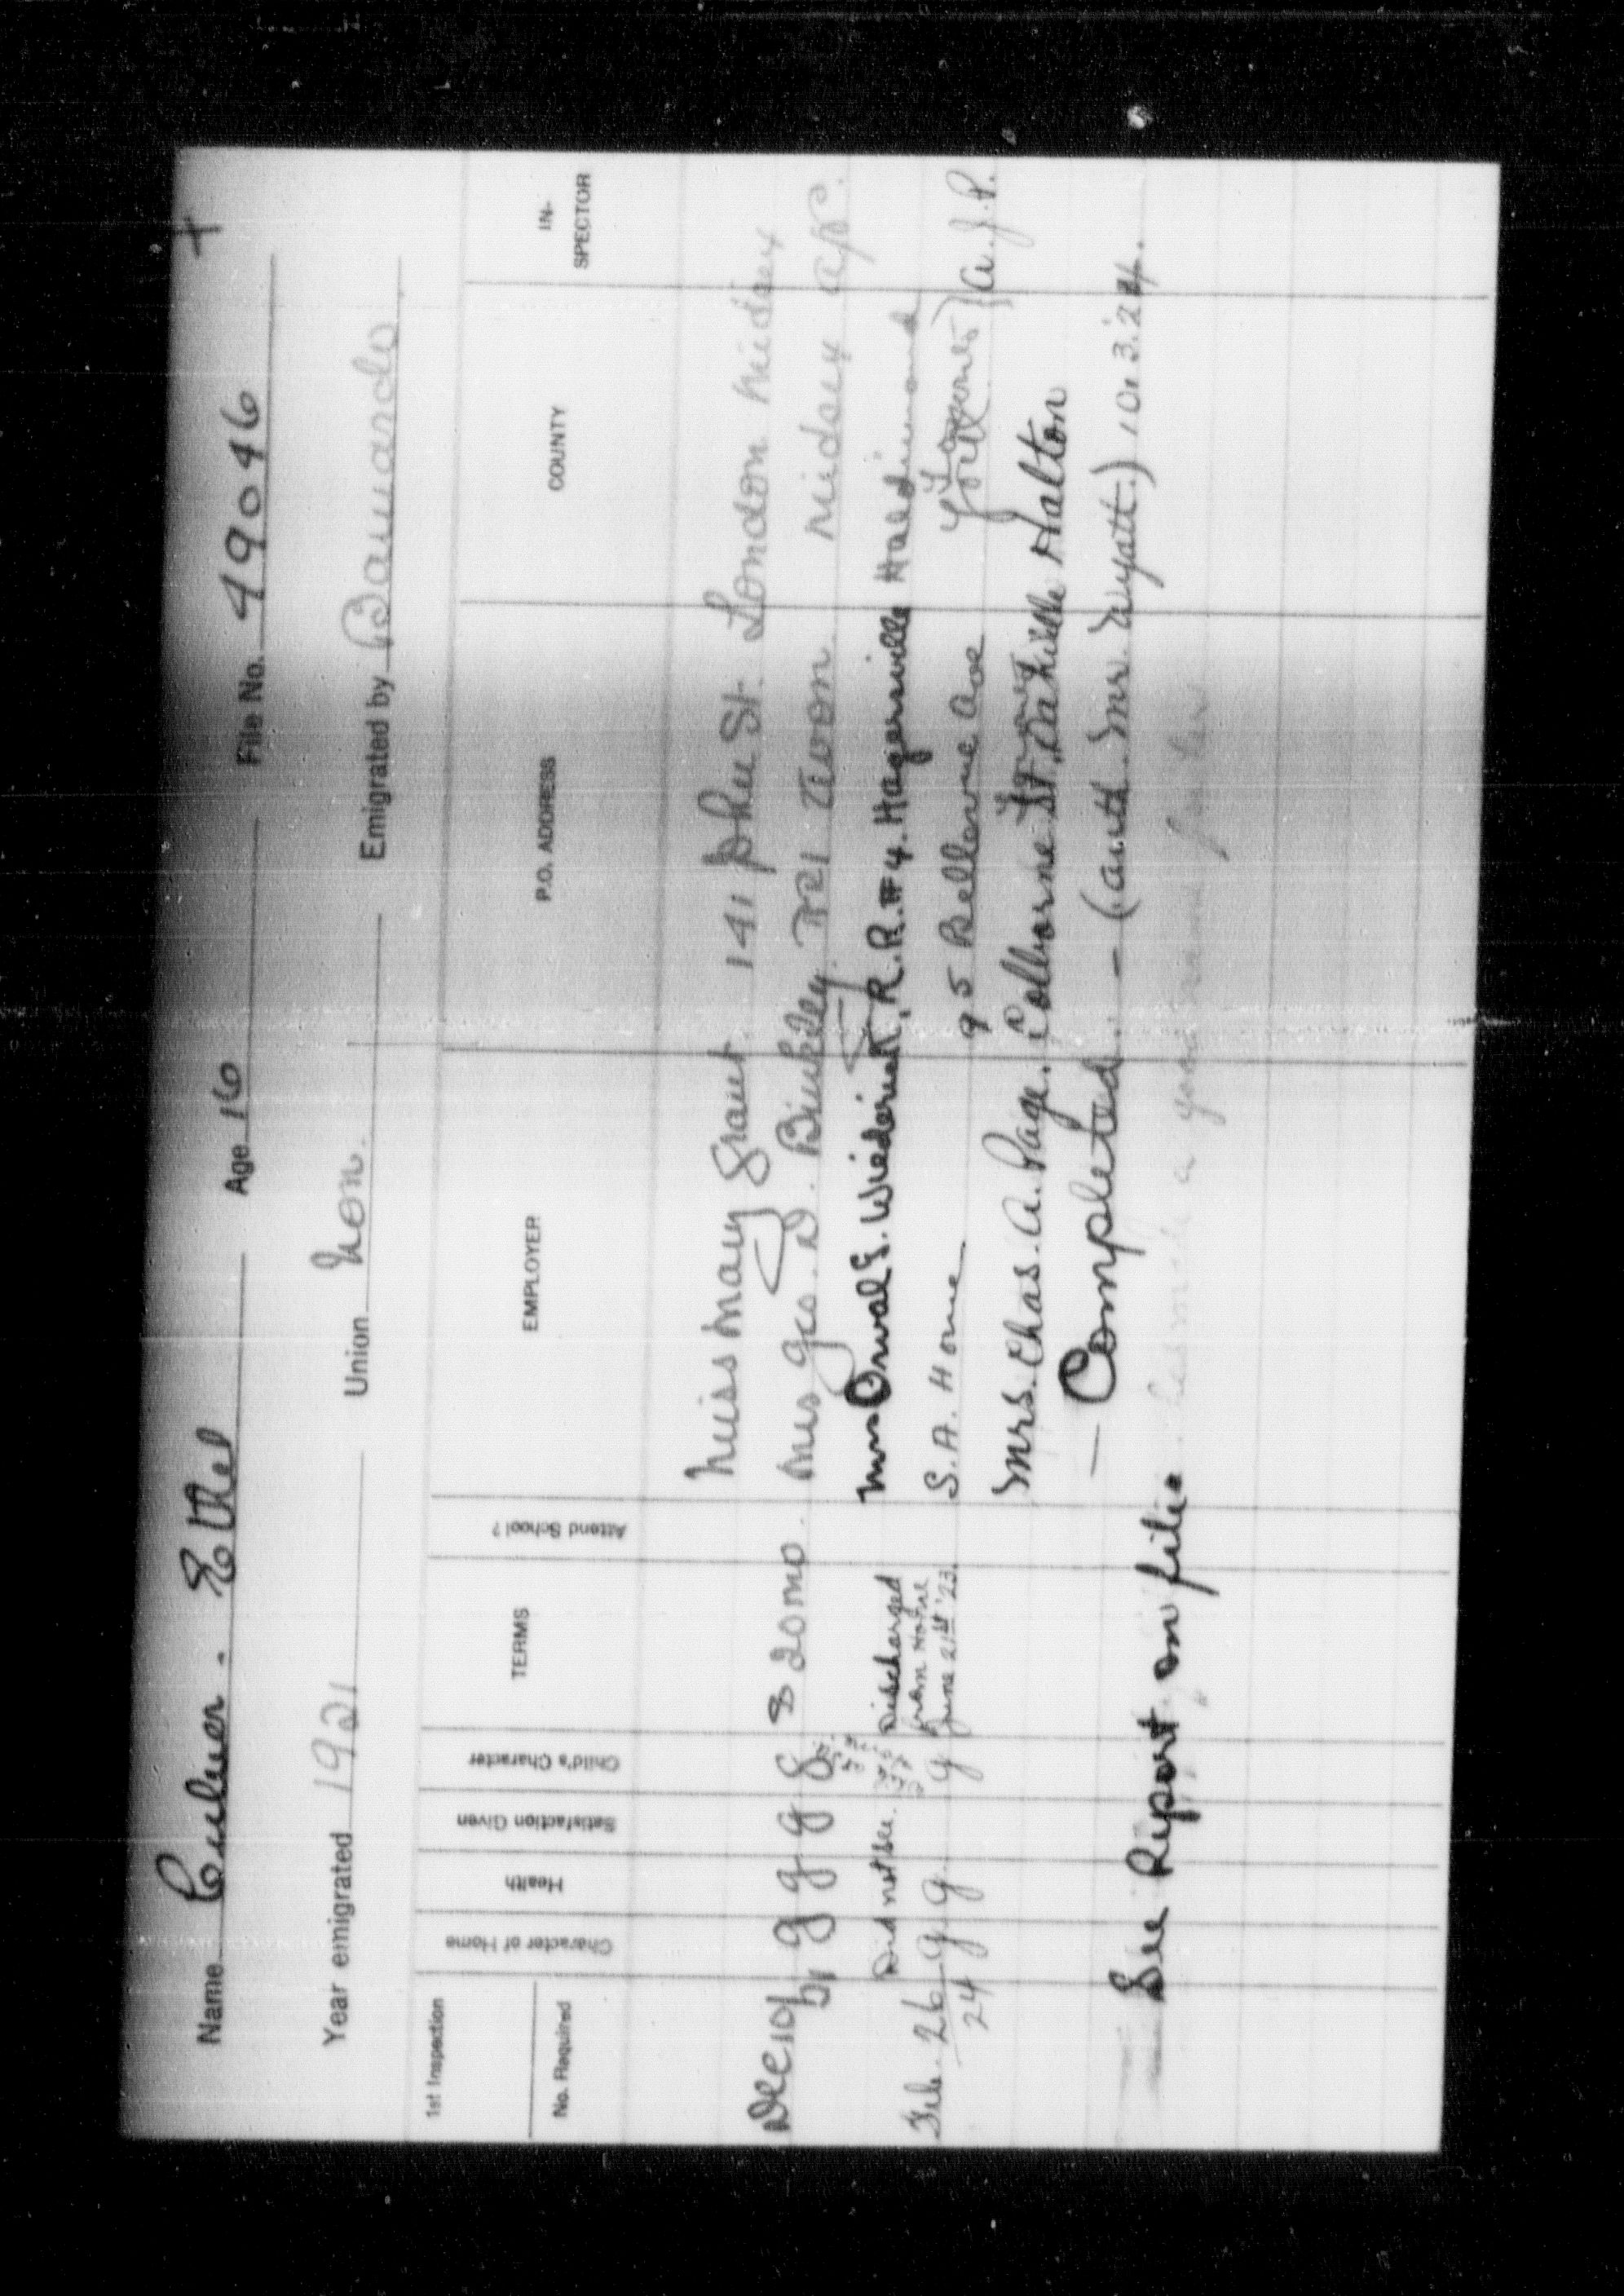 Name Culver - Ethel Age 16 File No. 49046 +
Year emigrated 1921 Union Non. Emigrated by Barnardo
1st Inspection
No. Required
Character of Home
Health
Satisfaction Given
Child's Character
TERMS
Attend School?
EMPLOYER
P.O. ADDRESS
COUNTY
IN-
SPECTOR
Miss Mary Grant 141 St. London Midsex
Dec 10/21 g g g g 8 20 mo. Mrs Geo. D. Binkley RR1 Avon. Midsex AP.
Did not see. Discharged from Home June 21st '23. Mrs Orval G. R.R. #4. Hagersville Haldimand
Feb. 26 24 g g g S. A. Home 95 Bellevue Ave A.J.P.
Mrs. Chas. A. Page. Colborne St. Oakville Halton
— Completed. — (auth. Mr. Wyatt.) 10.3.24.
See Report on file
a good